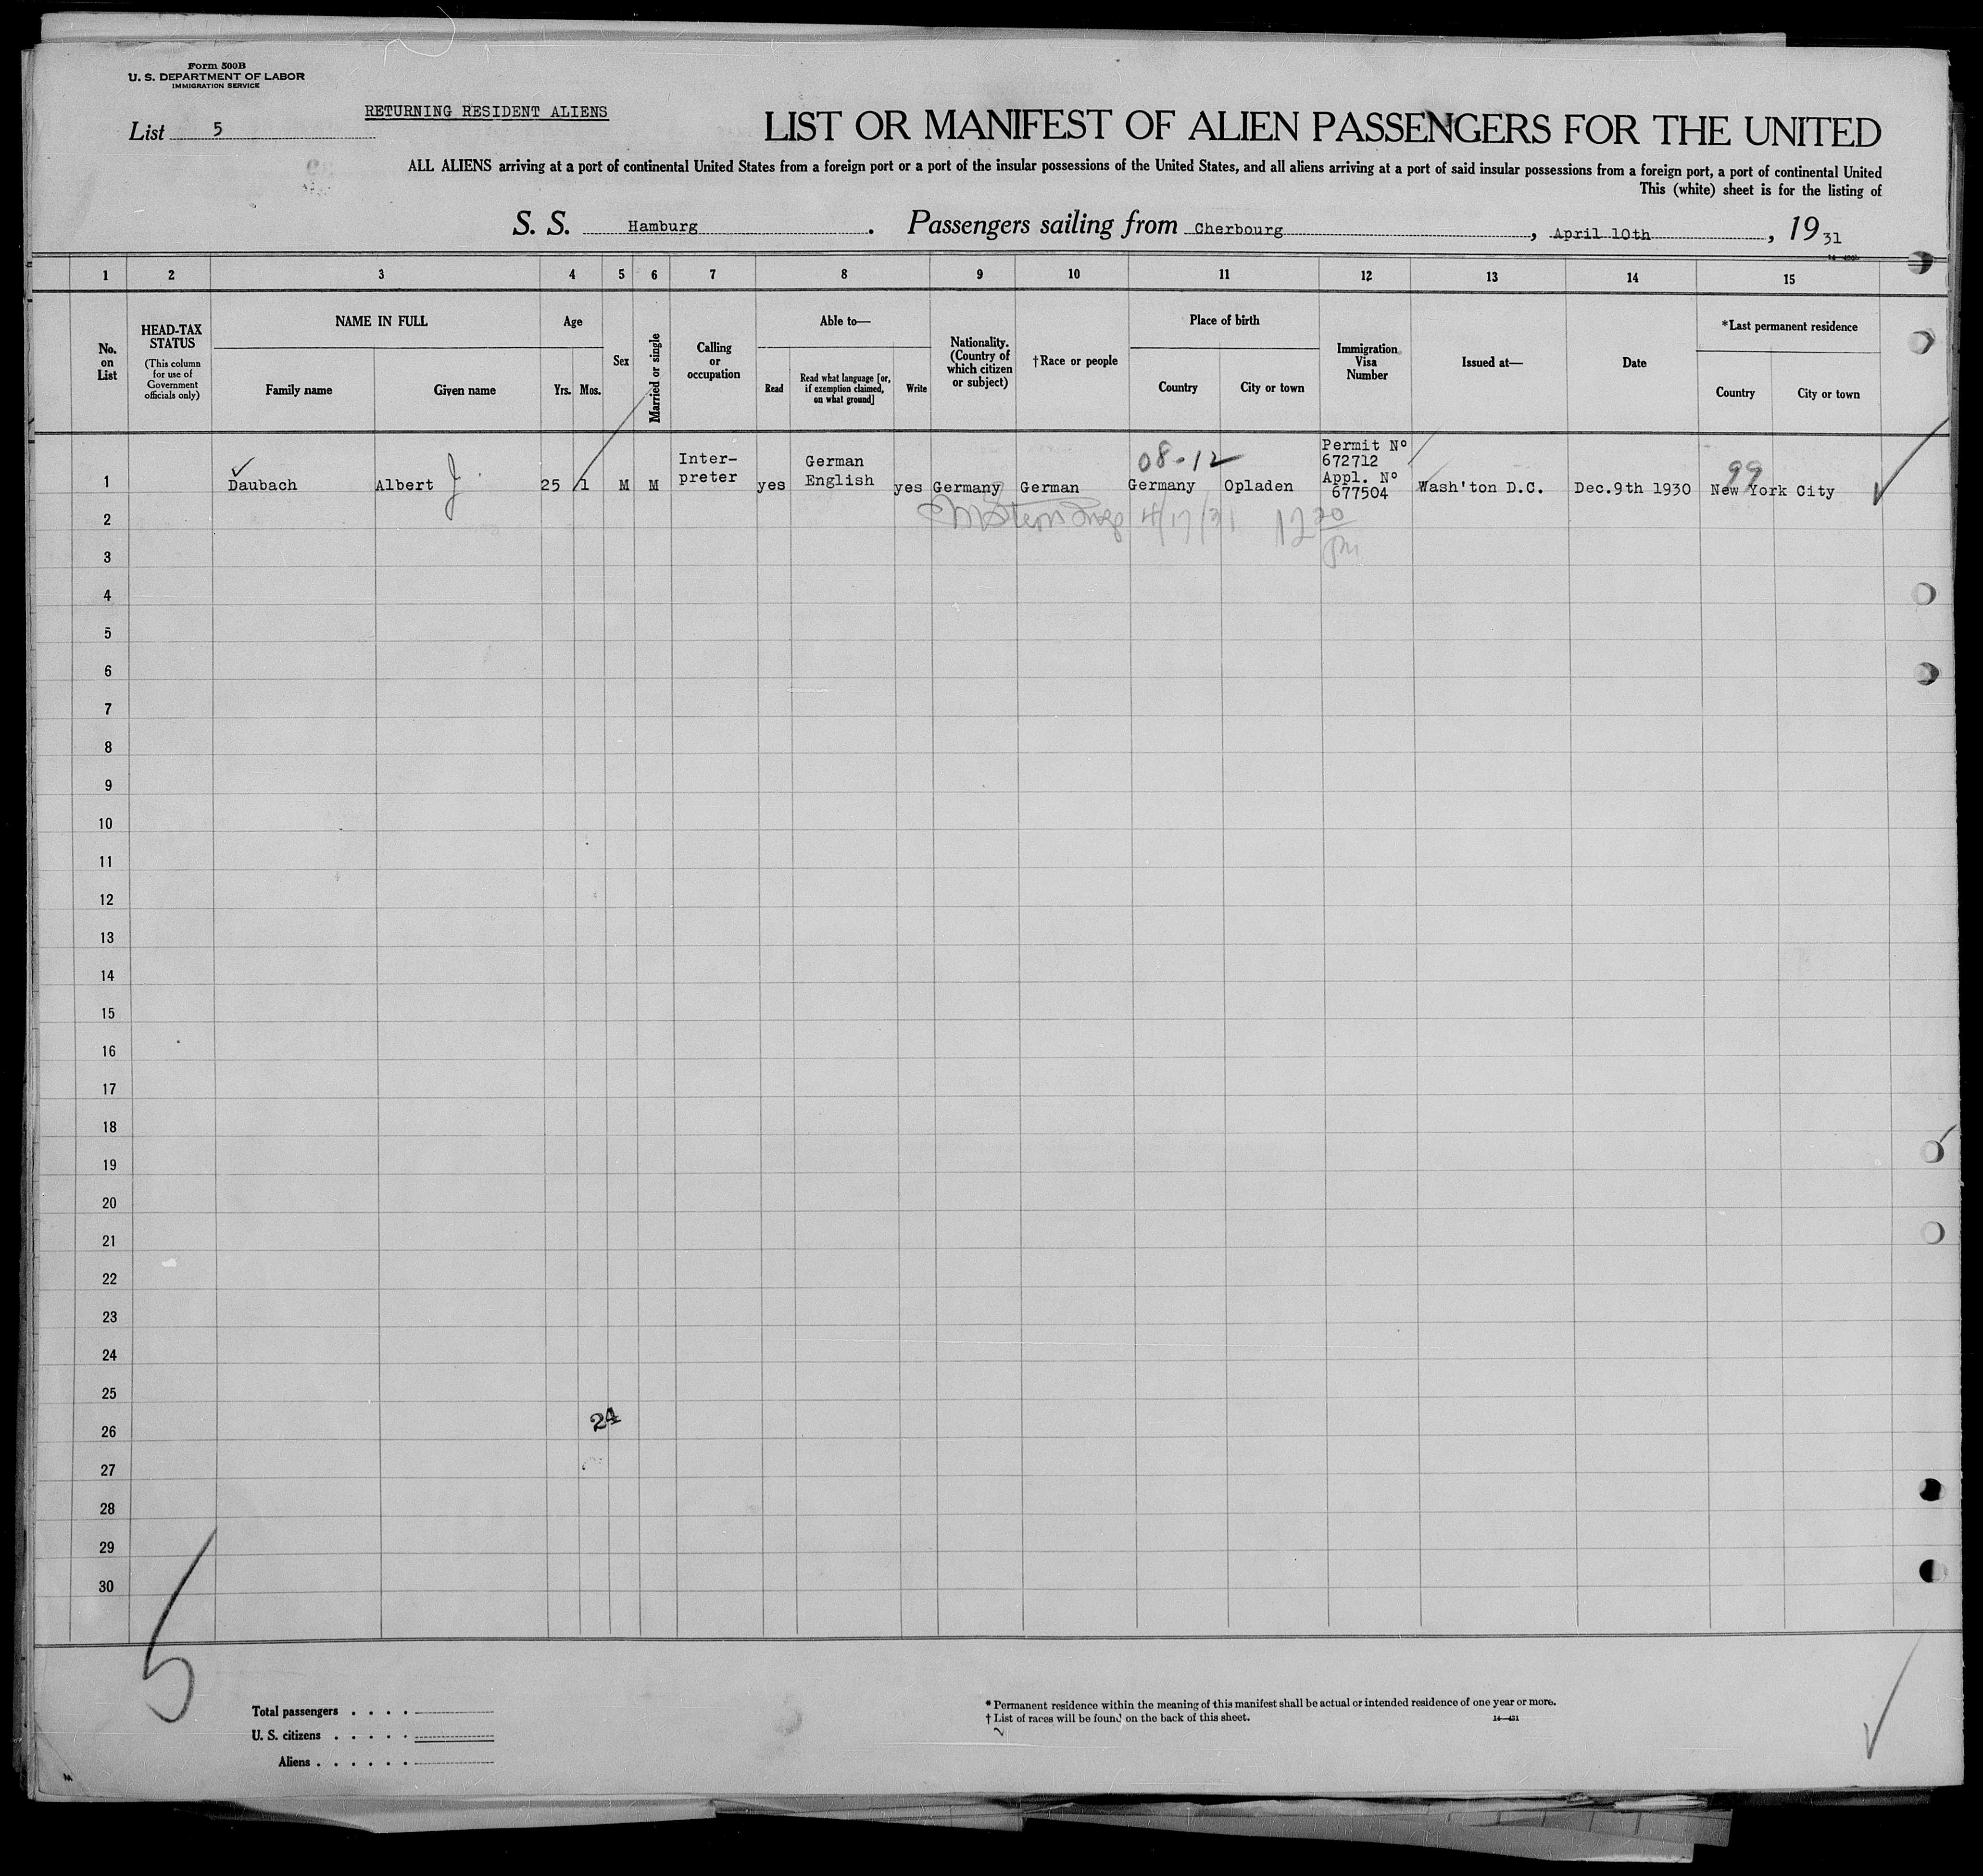 Form 500B
U. S. DEPARTMENT OF LABOR
IMMIGRATION SERVICE
RETURNING RESIDENT ALIENS
List 5
LIST OR MANIFEST OF ALIEN PASSENGERS FOR THE UNITED
ALL ALIENS arriving at a port of continental United States from a foreign port or a port of the insular possessions of the United States, and all aliens arriving at a port of said insular possessions from a foreign port, a port of continental United
This (white) sheet is for the listing of
S. S. Hamburg. Passengers sailing from Cherbourg, April 10th, 1931
1 2 3 4 5 6 7 8 9 10 11 12 13 14 15
No. on List
HEAD-TAX STATUS
(This column for use of Government officials only)
NAME IN FULL
Family name
Given name
Age
Yrs. Mos.
Sex
Married or single
Calling or occupation
Able to—
Read
Read what language [or, if exemption claimed, on what ground]
Write
Nationality. (Country of which citizen or subject)
†Race or people
Place of birth
Country
City or town
Immigration Visa Number
Issued at—
Date
*Last permanent residence
Country
City or town
1 Daubach Albert J. 25 1 M M Inter-preter yes German English yes Germany German 08-12 Germany Opladen Permit Nº 672712 Appl. Nº 677504 Wash'ton D.C. Dec.9th 1930 99 New York City
2 4/17/31 12 20 pm
3
4
5
6
7
8
9
10
11
12
13
14
15
16
17
18
19
20
21
22
23
24
25
24
26
27
28
29
30
5
Total passengers . . . .
U. S. citizens . . . . .
Aliens . . . . . .
* Permanent residence within the meaning of this manifest shall be actual or intended residence of one year or more.
† List of races will be found on the back of this sheet.
14—431